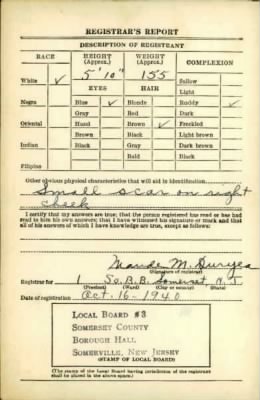 REGISTRAR'S REPORT
DESCRIPTION OF REGISTRANT
RACE HEIGHT (Approx.) WEIGHT (Approx.) COMPLEXION
5' 10" 155
White ✓ Sallow
EYES HAIR Light
Negro Blue ✓ Blonde Ruddy ✓
Gray Red Dark
Oriental Hazel Brown ✓ Freckled
Brown Black Light brown
Indian Black Gray Dark brown
Bald Black
Filipino
Other obvious physical characteristics that will aid in identification
Small scar on right
cheek
I certify that my answers are true; that the person registered has read or has had
read to him his own answers; that I have witnessed his signature or mark and that
all of his answers of which I have knowledge are true, except as follows:
Maude M. Duryea
(Signature of registrar)
Registrar for 1 So. B. B. Somerset, N. J.
(Precinct) (Ward) (City or county) (State)
Date of registration Oct. 16-1940
LOCAL BOARD #3
SOMERSET COUNTY
BOROUGH HALL
SOMERVILLE, NEW JERSEY
(STAMP OF LOCAL BOARD)
(The stamp of the Local Board having jurisdiction of the registrant
shall be placed in the above space.)